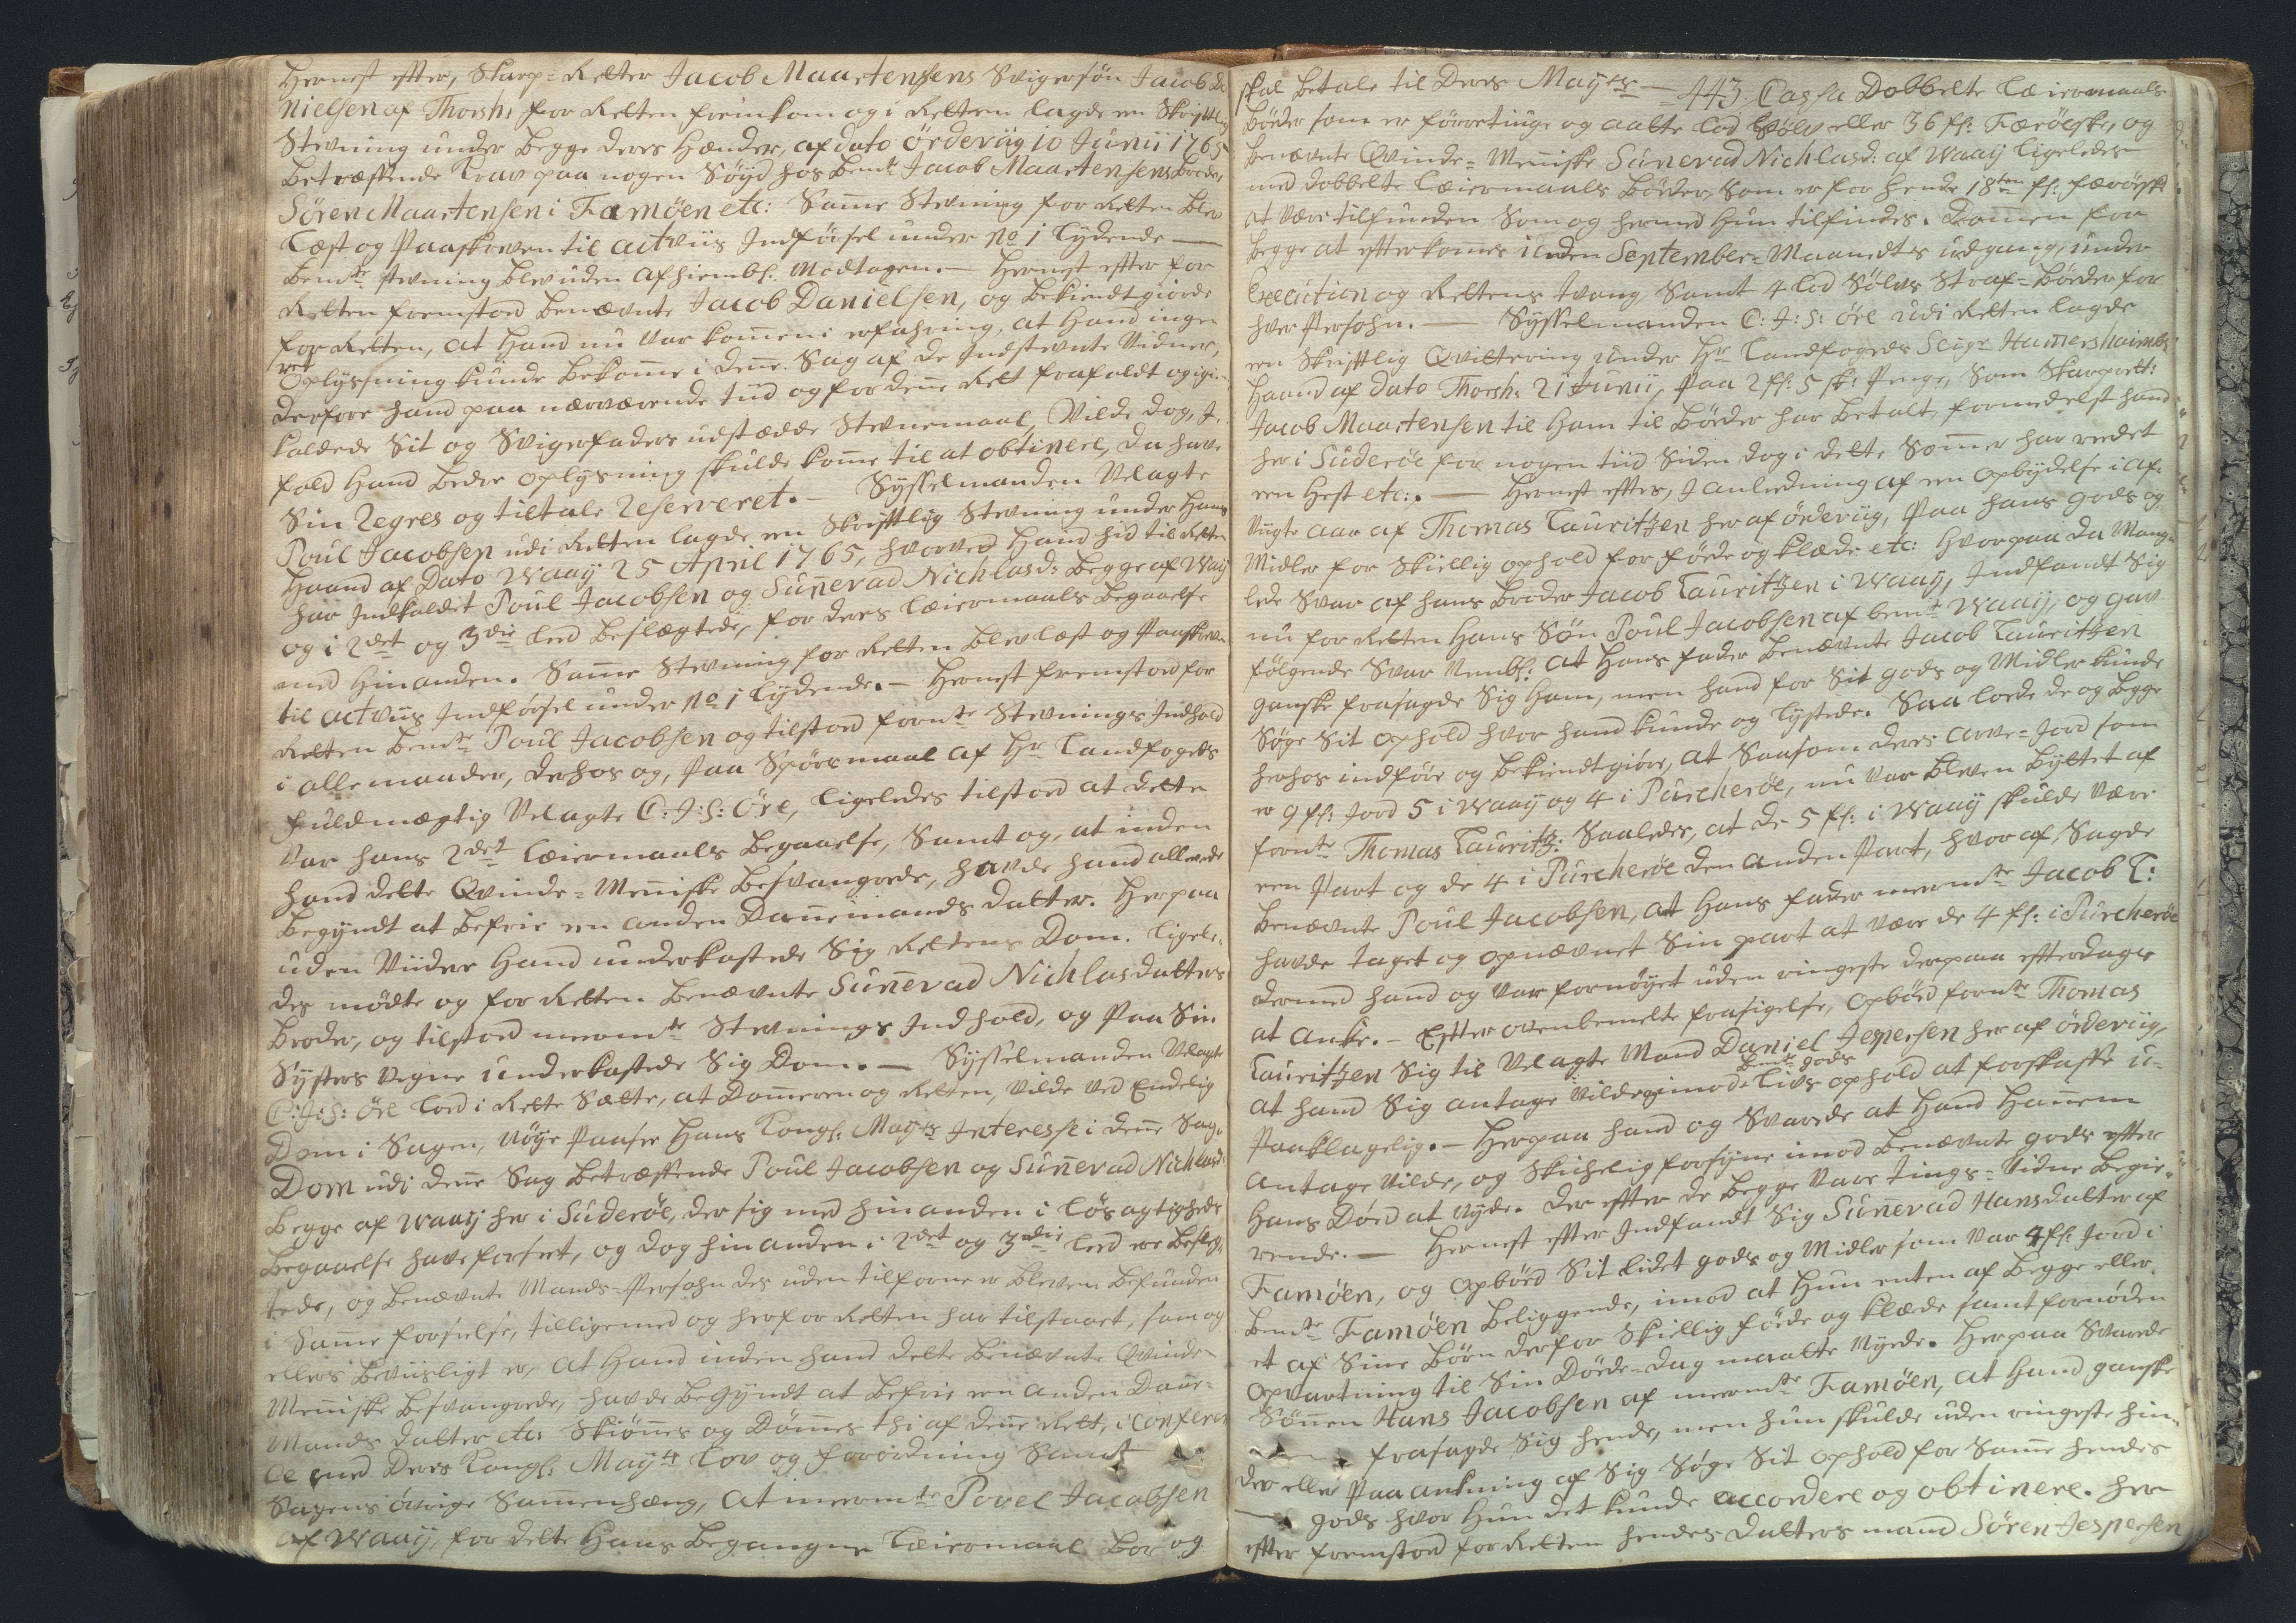 Hernest efter, Skarp-Retter Jacob Maartensens Svigersøn Jacob Da
Nielsen af Thorsh: for Retten fremkom og i Retten lagde en Skrifttlig
Stevning under begge deres Hænder, af dato Ørdevüg 10 Junii 1765
betræffende Krav paa nogen Søyd hos bemte Jacob Maartensens Broder,
Søren Maartensen i Famøen etc: Samme Stevning for Retten blev
læst og Paaskreven til Actviis Indførsel under No 1 Lydende —
bemte Stevning blev uden afhiembl: Modtagen. — Hernest efter for
Retten fremstod benævnte Jacob Danielsen, og bekiendtgiorde
for Retten, at Hand nu var kommen i erfahring, at Hand ingen
ret Oplysning kunde bekomme i denne Sag af de Indstevnte Vidner,
derfore hand paa nærværende tüd og for denne Ret frafaldt og igien
kaldede Sit og Svigerfaders udstædde Stevnemaal, Vilde dog, J
fald Hand bedre oplysning skulde komme til at obtinere, da have
Sin Regres og tiltale Reserveret. — Sysselmanden Velagte
Poul Jacobsen udi Retten lagde en Skrifttlig Stevning under Hans
Haand af Dato Waaÿ 25 April 1765, hvorved Hand hid til Retten
har Indkaldet Poul Jacobsen og Sünnevad Nichlasd: begge af Waaÿ
og i 2det og 3die led beslægtede, for deres Leiermaals begaaelse
med Hinanden. Samme Stevning for Retten blev læst og Paaskreven
til Actviis Indførsel under No 1 Lydende. — Hernest fremstod for
Retten bemte Poul Jacobsen og tilstod formte Stevnings Indhold
i alle maader, derhos og, Paa Spørsmaal af Hr Landfogeds
fuldmægtig Velagte C: J: S: Øre, ligeledes tilstod at dette
var hans 2det Leiermaals begaaelse, Samt og, at inden
hand dette Qvinde-Menniske besvangrede, havde hand allerede
begyndt at befrie en anden Dannemands datter. Herpaa
uden Viider Hand underkastede Sig Rettens Dom. Ligele-
des mødte og for Retten benævnte Sünnevad Nichlasdatters
Broder, og tilstod meermte Stevnings Indhold, og Paa Sin
Systers Vegne underkastede Sig Dom. — Sysselmanden Velagte
C: J: S: Øre lod i Rette Sætte, at Dommeren og Retten, Vilde ved Endelig
Dom i Sagen, nøye Paasee Hans Kongl: Mayts Interesse i denne Sag.
Dom udi denne Sag betræffende Poul Jacobsen og Sünnevad Nichlasd:
begge af Waaÿ her i Süderøe, der sig med hinanden i Løsagtigheds
begaaelse have forseet, og dog hinanden i 2det og 3die led ere beslæg-
tede, og benævnte Mands-Persohn des uden tilforne er bleven befunden
i Samme forseelse, tilligemed og her for Retten har tilstaaet, som og
ellers beviisligt er, at Hand inden hand dette benævnte Qvinde-
Menniske besvangrede, havde begyndt at befrie en anden Danne-
Mands datter etc: Skiønnes og Dømmes thi af denne Ret, i Conferen
ce med Deres Kongl: Mayts Lov og forordning Samt
Sagens øvrige Sammenhæng, at meermte Povel Jacobsen
af Waaÿ, for dette Hans begangne Leiermaal bør og
skal betale til Deres Mayts — 443. Cassa Dobbelte Leiermaals
bøder som er førretiuge og aatte lod Sølv eller 36 fl: Færøiske, og
benævnte Qvinde-Menniske Sünevad Nichlasd: af Waaÿ ligeledes
med dobbelte Leiermaals bøder, som er for hende 18ten fl: færøiske
at være tilfunden Som og hermed Hun tilfindes. Dommen for
begge at efterkommes inden September-Maanedts udgang, under
Execution og Rettens tvang Samt 4 lod Sølvs Straf-bøder for
hver Persohn. — Sysselmanden C: J: S: Øre udi Retten lagde
en Skrifttlig Qvittering under Hr Landfogeds Seigr Hamershaimbs
Haand af dato Thorsh: 21 Junii, Paa 2 fl: 5 sk: Penge, Som Skarprett:
Jacob Maartensen til Ham til bøder har betalt, formedelst hand
her i Süderøe for nogen tiid Siden dog i dette Sommer har redet
een Hest etc:. — Hernest efter, J anledning af en opbydelse i af-
vigte aar af Thomas Lauritzen her af Ørdevüg, Paa hans gods og
Midler for Skiellig ophold for føde og klæde etc: hvorpaa da Mang-
lede Svar af hans Broder Jacob Lauritzen i Waaÿ, Indfandt Sig
nu for Retten Hans Søn Poul Jacobsen af bemte Waaÿ, og gav
følgende Svar Nembl: At Hans fader benævnte Jacob Lauritzen
ganske frasagde Sig Ham, men hand for Sit gods og Midler kunde
Søge Sit ophold hvor hand kunde og Lystede. Saa lode de og begge
herhos indføre og bekiendtgiøre, at Saasom deres Arve-Jord som
er 9 fl: Jord 5 i Waaÿ og 4 i Purcherøe, nu var bleven byttet af
formte Thomas Lauritz: Saaledes, at de 5 fl: i Waaÿ skulde være
een Part og de 4 i Purcherøe den anden Part, hvor af, Sagde
benævnte Poul Jacobsen, at Hans fader meermte Jacob L:
havde taget og opnævnet Sin part at være de 4 fl: i Purcherøe
dermed hand og var fornøyet uden ringeste derpaa efterdags
at Anke. — Efter ovenbemelte frasigelse, opbød formte Thomas
Lauritzen Sig til Velagte Mand Daniel Jespersen her af Ørdevüg,
bemte gods
at hand Sig antage Vilde og imod Livs ophold at forskaffe u-
Paaklagelig. — Herpaa hand og Svarede at Hand Hannem
antage Vilde, og Skichelig forsyne imod benævnte gods efter
Hans Død at Nyde. Der efter de begge Vare tings-Vidne begie-
rende. — Hernest efter Indfandt Sig Sünnevad Hansdatter af
Famøen, og opbød Sit Lidet gods og Midler som var 4 fl: Jord i
bemte Famøen beliggende, imod at Hun enten af begge eller
et af Sine Børn derfor Skiellig føde og klæde samt fornøden
opvartning til Sin Døde-dag maatte Nyde. Herpaa Svarede
Sønnen Hans Jacobsen af meermte Famøen, at Hand ganske
frasagde Sig hende, men hun skulde uden ringeste hin-
der eller Paaankning af Sig Søge Sit ophold for Samme hendes
gods hvor Hun det kunde accordere og obtinere. Her
efter fremstod for Retten hendes datters mand Søren Jespersen